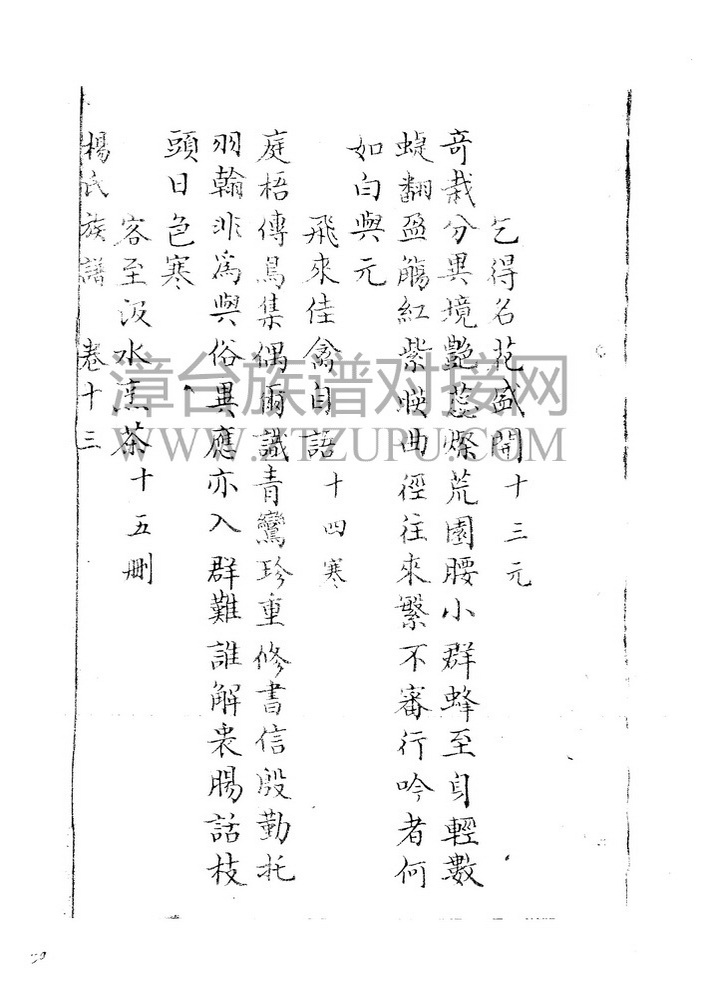 乞得名花盛開 十三元
奇栽分異境艷蕊燦荒園腰小群蜂至身輕數
蜨翻盈觴紅紫映曲徑往來繁不審行吟者何
如白與元
飛來佳禽自語 十四寒
庭梧傳鳥集偶爾識青鸞珍重修書信殷勤托
羽翰非為與俗異應亦入群難誰解衷腸話枝
頭日色寒
客至汲水烹茶 十五刪
楊氏族譜 卷十三
漳台族谱对接网
WWW.ZTZUPU.COM